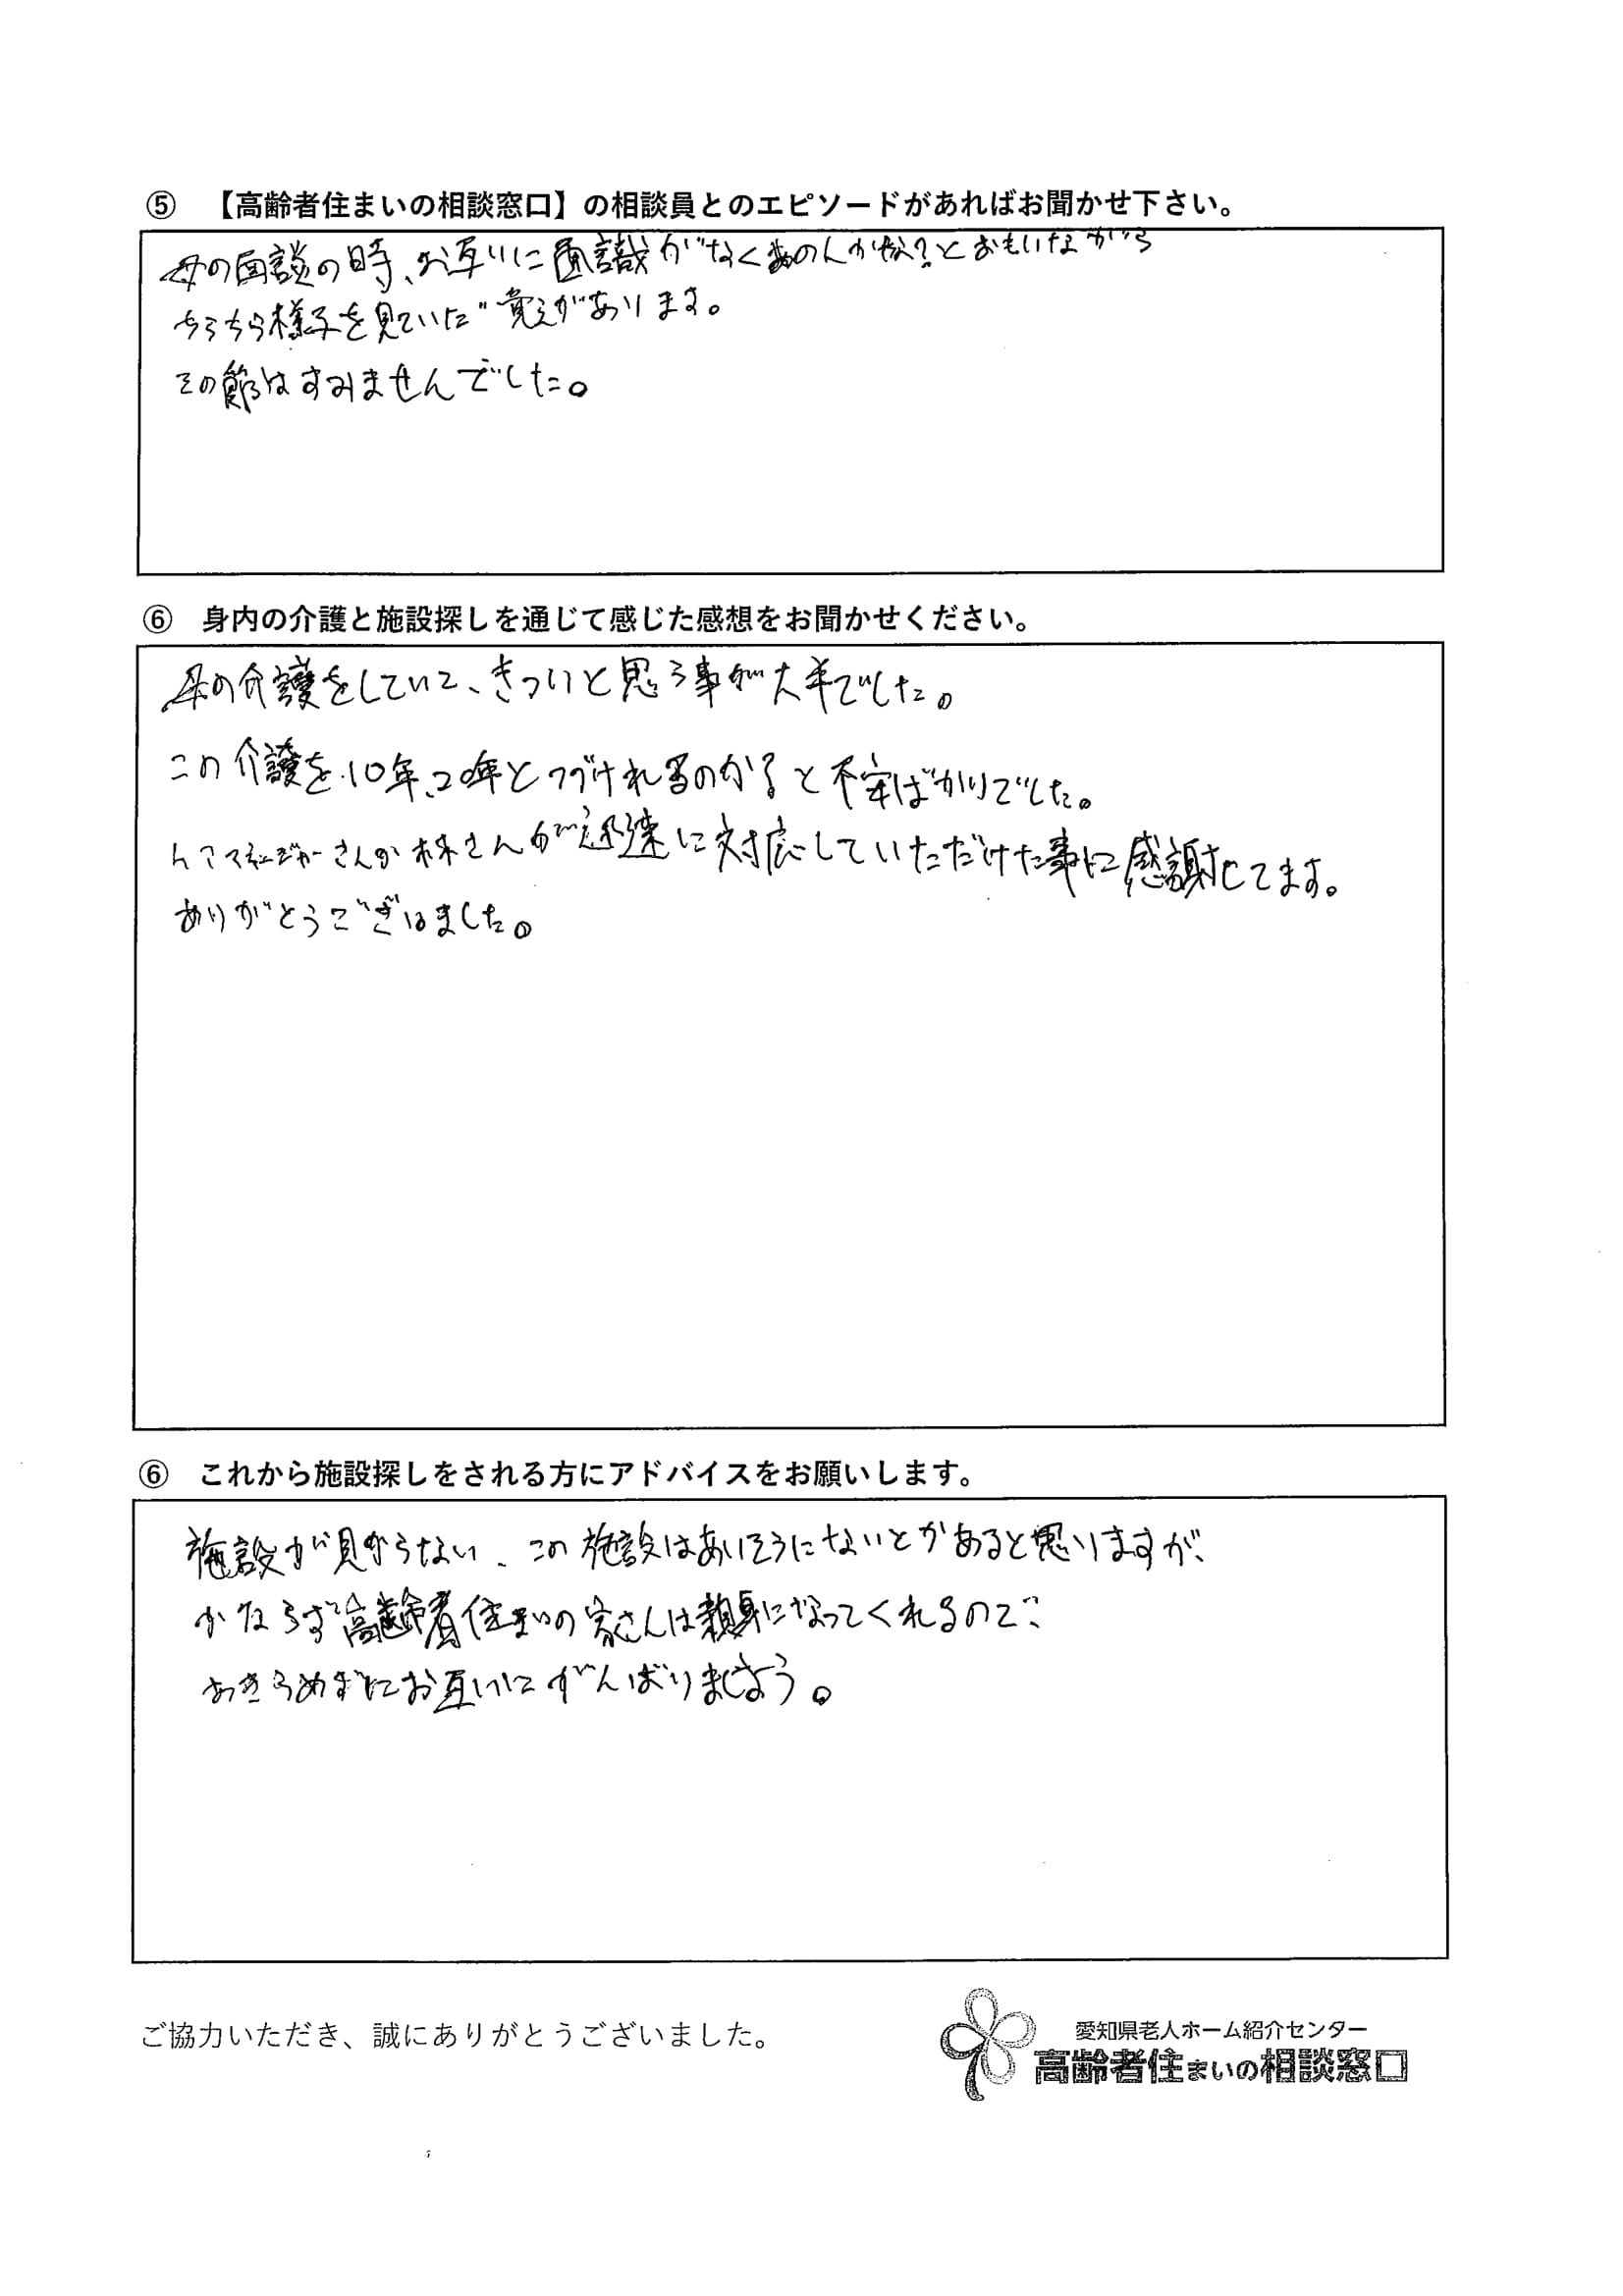 ⑤ 【高齢者住まいの相談窓口】の相談員とのエピソードがあればお聞かせ下さい。
母の面談の時、お互いに面識がなくあの人かな?とおもいながら
ちらちら様子を見ていた覚えがあります。
その節はすみませんでした。
⑥ 身内の介護と施設探しを通じて感じた感想をお聞かせください。
母の介護をしていて、きついと思う事が大半でした。
この介護を10年、20年とつづけれるのか?と不安ばかりでした。
ケアマネージャーさんや林さんが迅速に対応していただけた事に感謝してます。
ありがとうございました。
⑥ これから施設探しをされる方にアドバイスをお願いします。
施設が見からない、この施設はあいそうにないとかあると思いますが、
かならず高齢者住まいの皆さんは親身になってくれるので
あきらめずにお互いにがんばりましょう。
ご協力いただき、誠にありがとうございました。
愛知県老人ホーム紹介センター
高齢者住まいの相談窓口